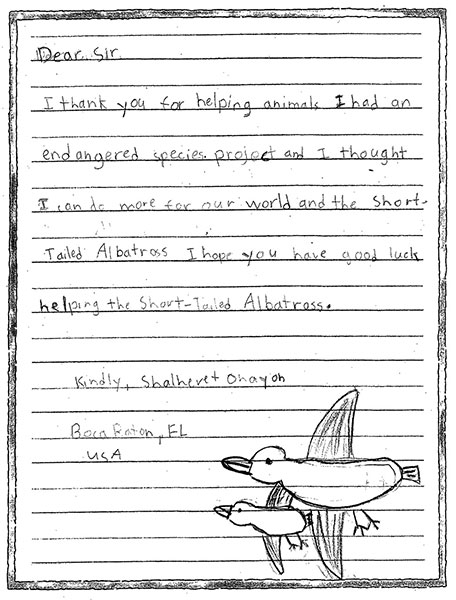 Dear Sir
I thank you for helping animals I had an
endangered species project and I thought
I can do more for our world and the Short-
Tailed Albatross I hope you have good luck
helping the Short-Tailed Albatross.
Kindly, Shalhevet Ohayon
Boca Raton, FL
USA